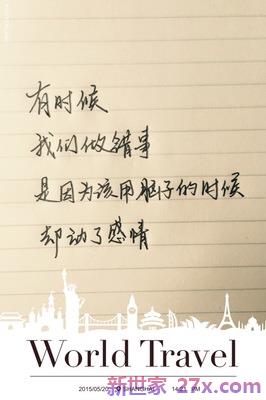 有时候
我们做错事
是因为该用脑子的时候
却动了感情
World Travel
2015/05/20 SHANGHAI 14:21 PM
新世家 27x.com